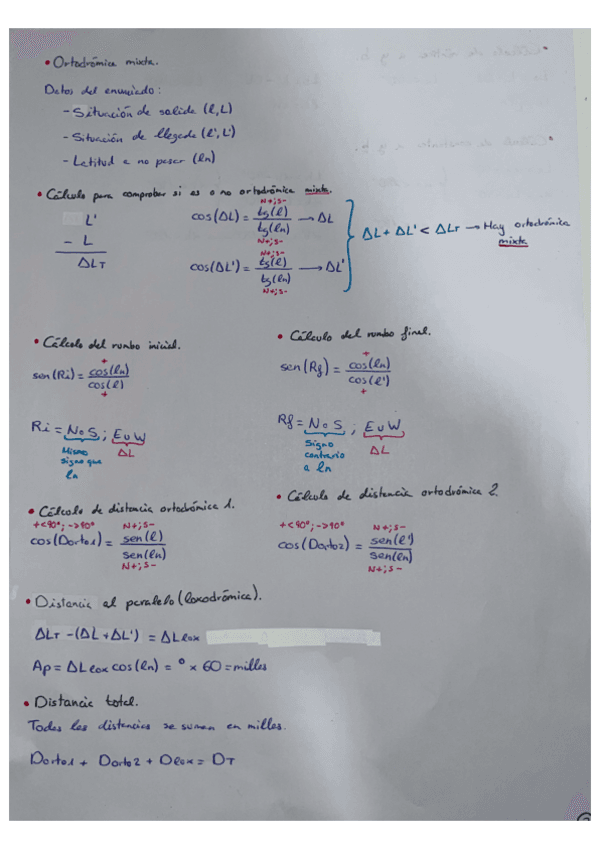 • Ortodrómica mixta.
Datos del enunciado:
- Situación de salida (l, L)
- Situación de llegada (l', L')
- Latitud a no pasar (ln)
• Cálculo para comprobar si es o no ortodrómica mixta.
L'
- L
ΔLT
N+; S-
cos(ΔL) = tg(l) / tg(ln) → ΔL
N+; S-
cos(ΔL') = tg(l) / tg(ln) → ΔL'
N+; S-
ΔL + ΔL' < ΔLT → Hay ortodrómica mixta
• Cálculo del rumbo inicial.
+
sen(Ri) = cos(ln) / cos(l)
+
Ri = N o S ; E u W
Mismo signo que ln
ΔL
• Cálculo del rumbo final.
+
sen(Rf) = cos(ln) / cos(l')
+
Rf = N o S ; E u W
Signo contrario a ln
ΔL
• Cálculo de distancia ortodrómica 1.
+<90°; ->90° N+; S-
cos(Dorto1) = sen(l) / sen(ln)
N+; S-
• Cálculo de distancia ortodrómica 2.
+<90°; ->90° N+; S-
cos(Dorto2) = sen(l') / sen(ln)
N+; S-
• Distancia al paralelo (loxodrómica).
ΔLT - (ΔL + ΔL') = ΔLlox
Ap = ΔLlox cos(ln) = ° x 60 = millas
• Distancia total.
Todas las distancias se suman en millas.
Dorto1 + Dorto2 + Dlox = DT